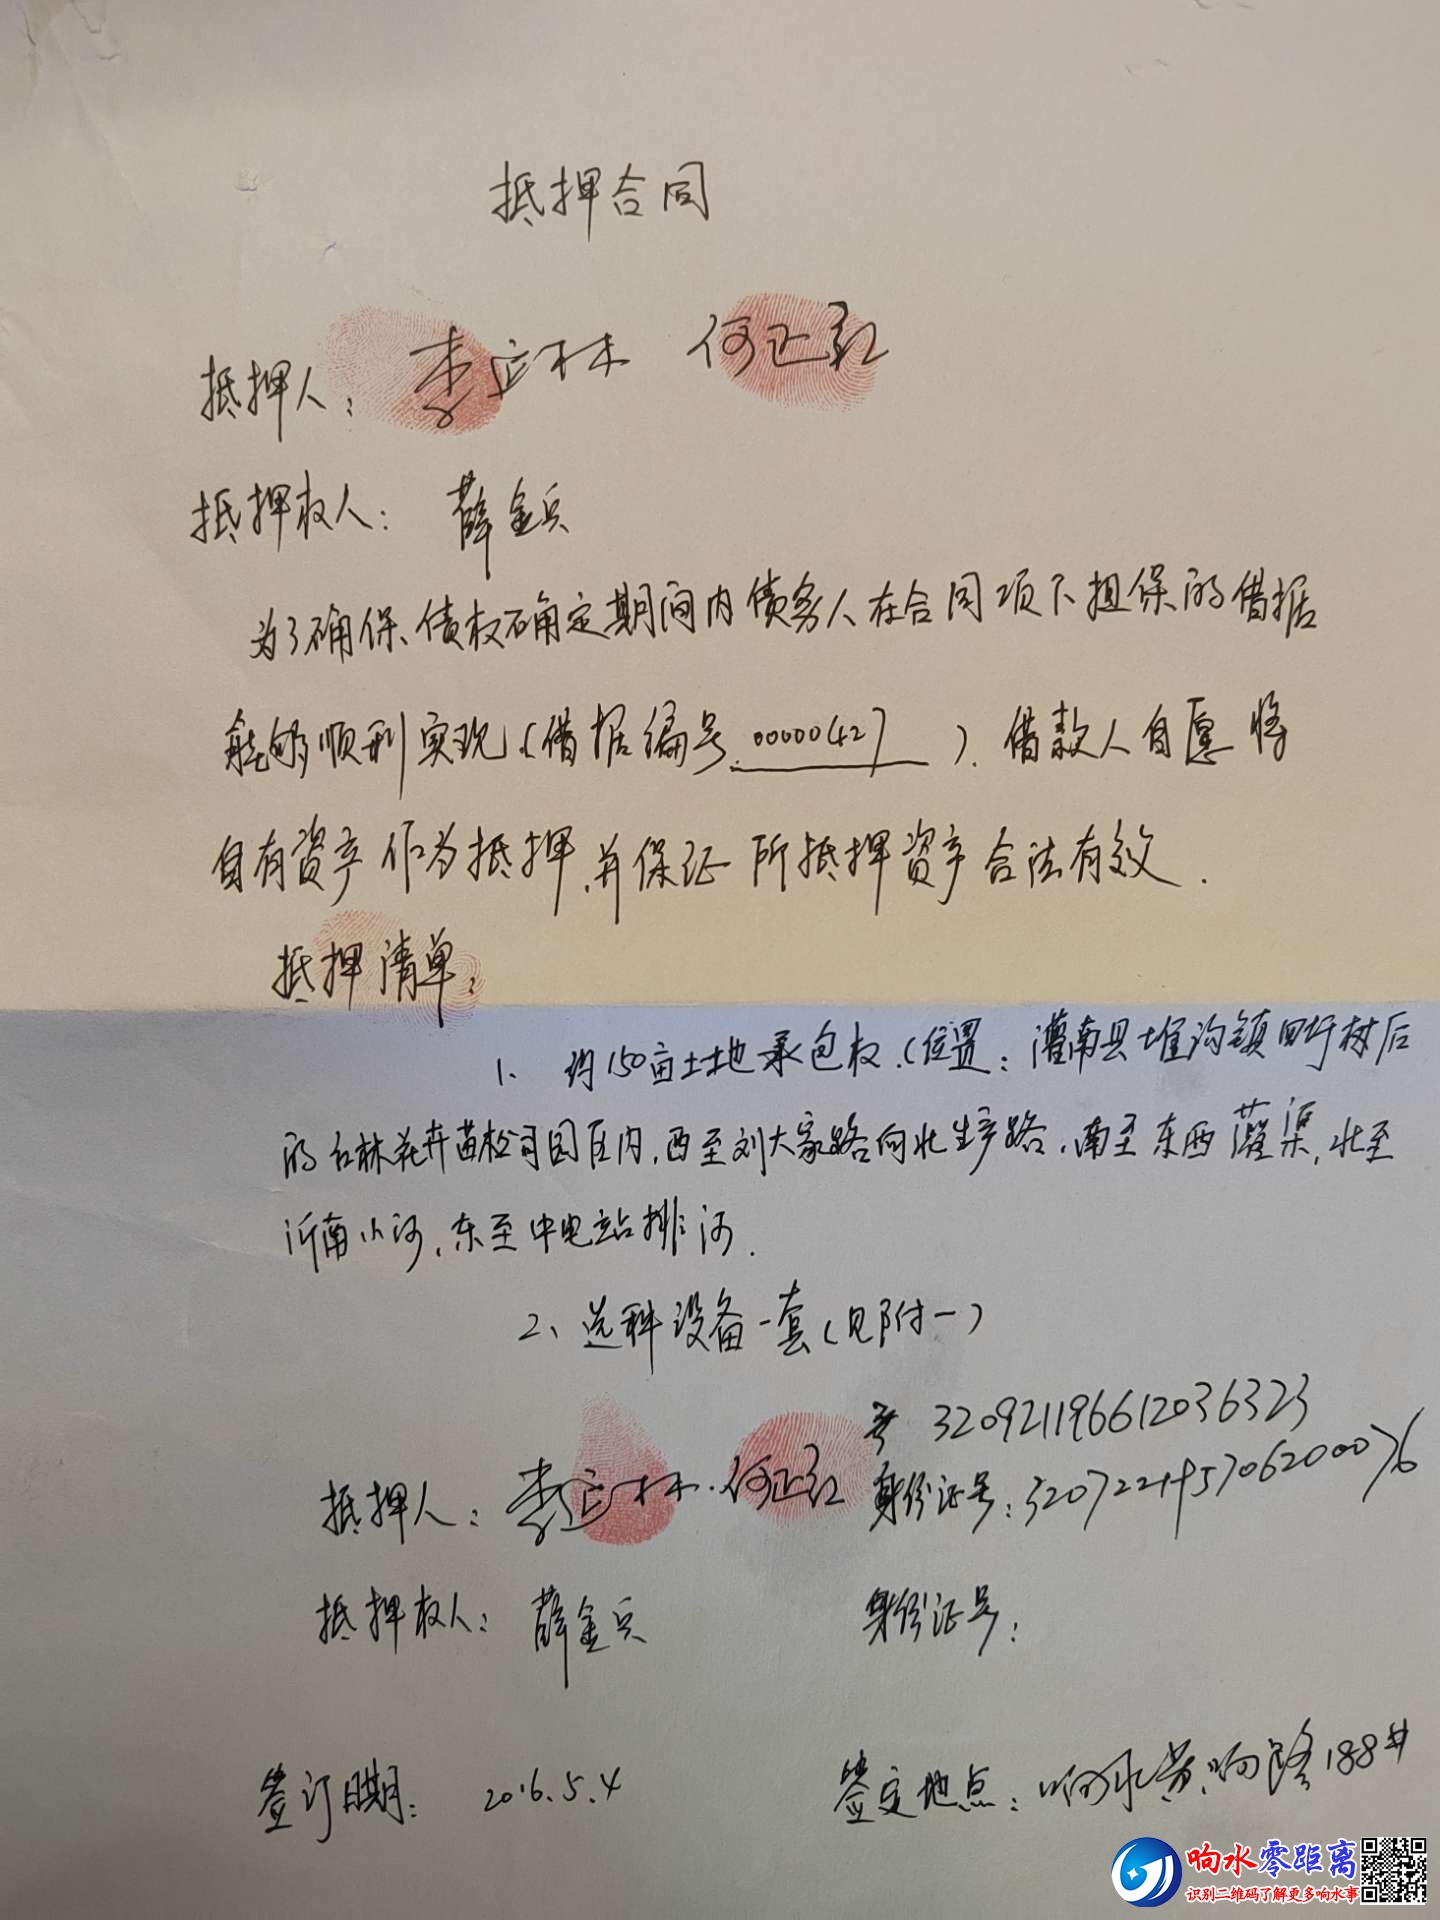 抵押合同
抵押人: 李应林 何正红
抵押权人: 薛金兵
为了确保债权确定期间内债务人在合同项下担保的借据
能够顺利实现(借据编号 0000042 ). 借款人自愿将
自有资产作为抵押,并保证所抵押资产合法有效.
抵押清单:
1、约150亩土地承包权.(位置:灌南县堆沟镇四圩村后
的 林花卉苗木公司园区内,西至刘大家路向北生产路,南至东西灌渠,北至
沂南小河,东至中电站排河.
2、选种设备一套(见附一)
号 320921196612036323
抵押人: 李应林.何正红 身份证号:320722195706200076
抵押权人: 薛金兵 身份证号:
签订日期: 2016.5.4 签定地点:响水黄响路188#
响水零距离
识别二维码了解更多响水事